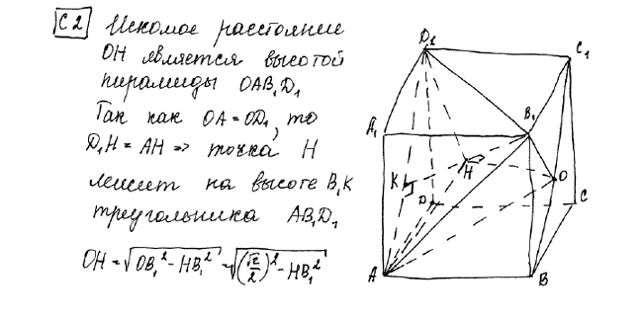 C2 Искомое расстояние
OH является высотой
пирамиды OAB₁D₁
Так как OA=OD₁, то
D₁H=AH => точка H
лежит на высоте B₁K
треугольника AB₁D₁
OH=√(OB₁²-HB₁²)=√((√2/2)²-HB₁²)
D₁
C₁
A₁
B₁
K
H
D
O
C
A
B